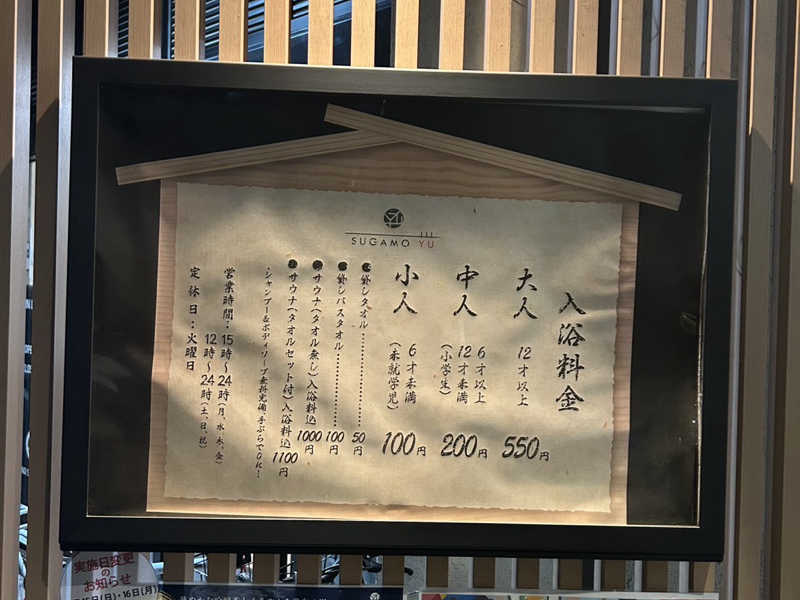 SUGAMO YU
入浴料金
大人 12才以上 550円
中人 6才以上
12才未満
(小学生) 200円
小人 6才未満
(未就学児) 100円
貸しタオル 50円
貸しバスタオル 100円
サウナ(タオル無し)入浴料込 1000円
サウナ(タオルセット付)入浴料込 1100円
シャンプー&ボディソープ無料完備、手ぶらでOK!
営業時間:15時〜24時(月、水、木、金)
12時〜24時(土、日、祝)
定休日:火曜日
実施日変更
のお知らせ
15日(日)・16日(月)